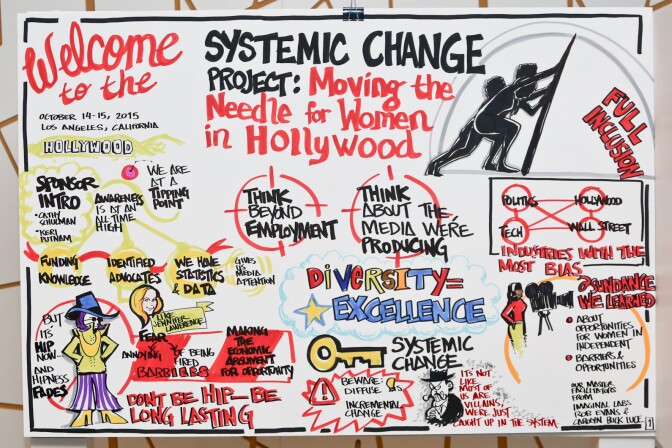 Welcome
to the
SYSTEMIC CHANGE
PROJECT: Moving the
Needle for Women
in Hollywood
OCTOBER 14-15, 2015
LOS ANGELES, CALIFORNIA
HOLLYWOOD
FULL
INCLUSION
SPONSOR
INTRO
• CATHY
SCHULMAN
• KERI
PUTNAM
AWARENESS
IS AT AN
ALL TIME
HIGH
WE ARE
AT A
TIPPING
POINT
THINK
BEYOND
EMPLOYMENT
THINK
ABOUT THE
MEDIA WE'RE
PRODUCING
POLITICS
HOLLYWOOD
TECH
WALL STREET
INDUSTRIES WITH THE
MOST BIAS
FUNDING
KNOWLEDGE
IDENTIFIED
ADVOCATES
WE HAVE
STATISTICS
& DATA
GIVES
IT MEDIA
ATTENTION
DIVERSITY=
EXCELLENCE
@SUNDANCE
WE LEARNED
• ABOUT
OPPORTUNITIES
FOR WOMEN IN
INDEPENDENT
• BARRIERS &
OPPORTUNITIES
OUR MASTER
FACILITATORS
FROM
IMAGINAL LABS
ROB EVANS &
CAROLYN BUCK LUCE
BUT
IT'S
HIP
NOW
AND
HIPNESS
FADES
LIKE
JENNIFER
LAWRENCE
FEAR
OF
ANNOYING
OF BEING
FIRED
BARRIERS
MAKING
THE
ECONOMIC
ARGUMENT
FOR OPPORTUNITY
DON'T BE HIP—BE
LONG LASTING
SYSTEMIC
CHANGE
BEWARE:
DIFFUSE
INCREMENTAL
CHANGE
IT'S NOT
LIKE
MOST OF
US ARE
VILLAINS,
WE'RE JUST
CAUGHT UP IN THE SYSTEM
1